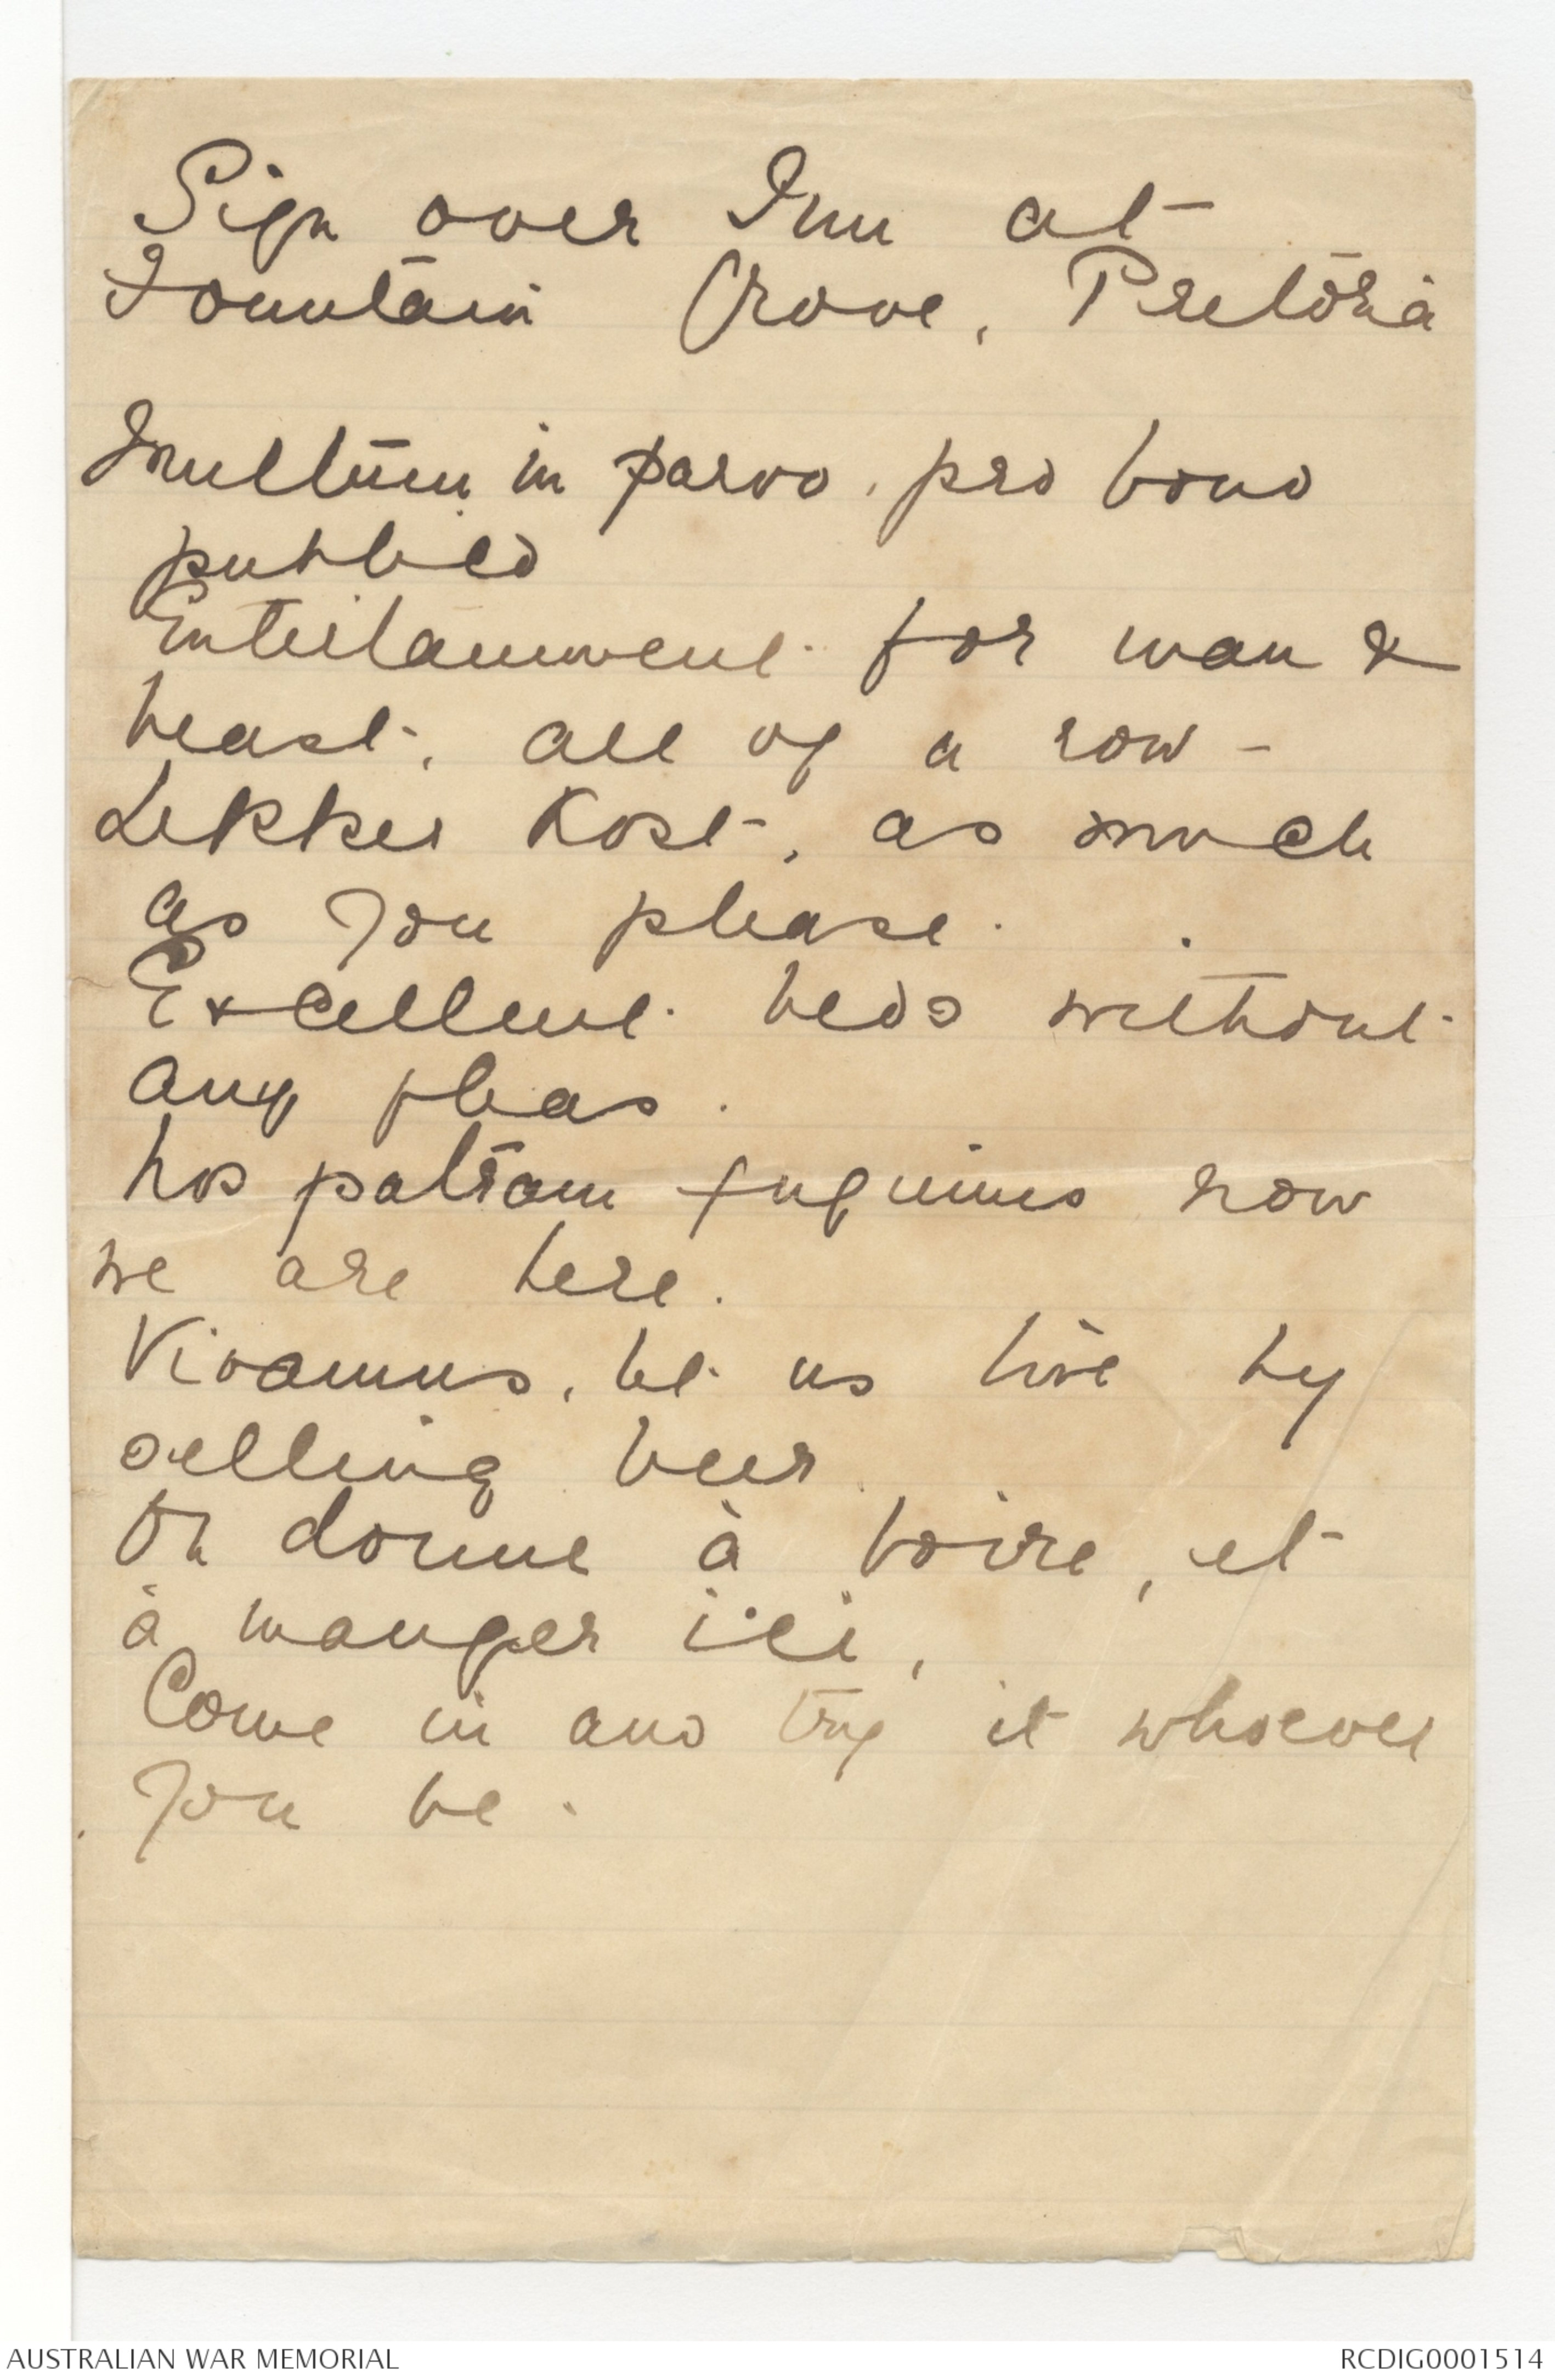 Sign over Inn at
Fountain Grove, Pretoria
Multum in parvo, pro bono
publico
Entertainment for man &
beast, all of a row -
Lekker Kost, as much
as you please.
Excellent beds without
any fleas.
Nos patriam fugimus now
we are here.
Vivamus, let us live by
selling beer.
On donne à boire, et
à manger ici,
Come in and try it whoever
you be.
AUSTRALIAN WAR MEMORIAL
RCDIG0001514